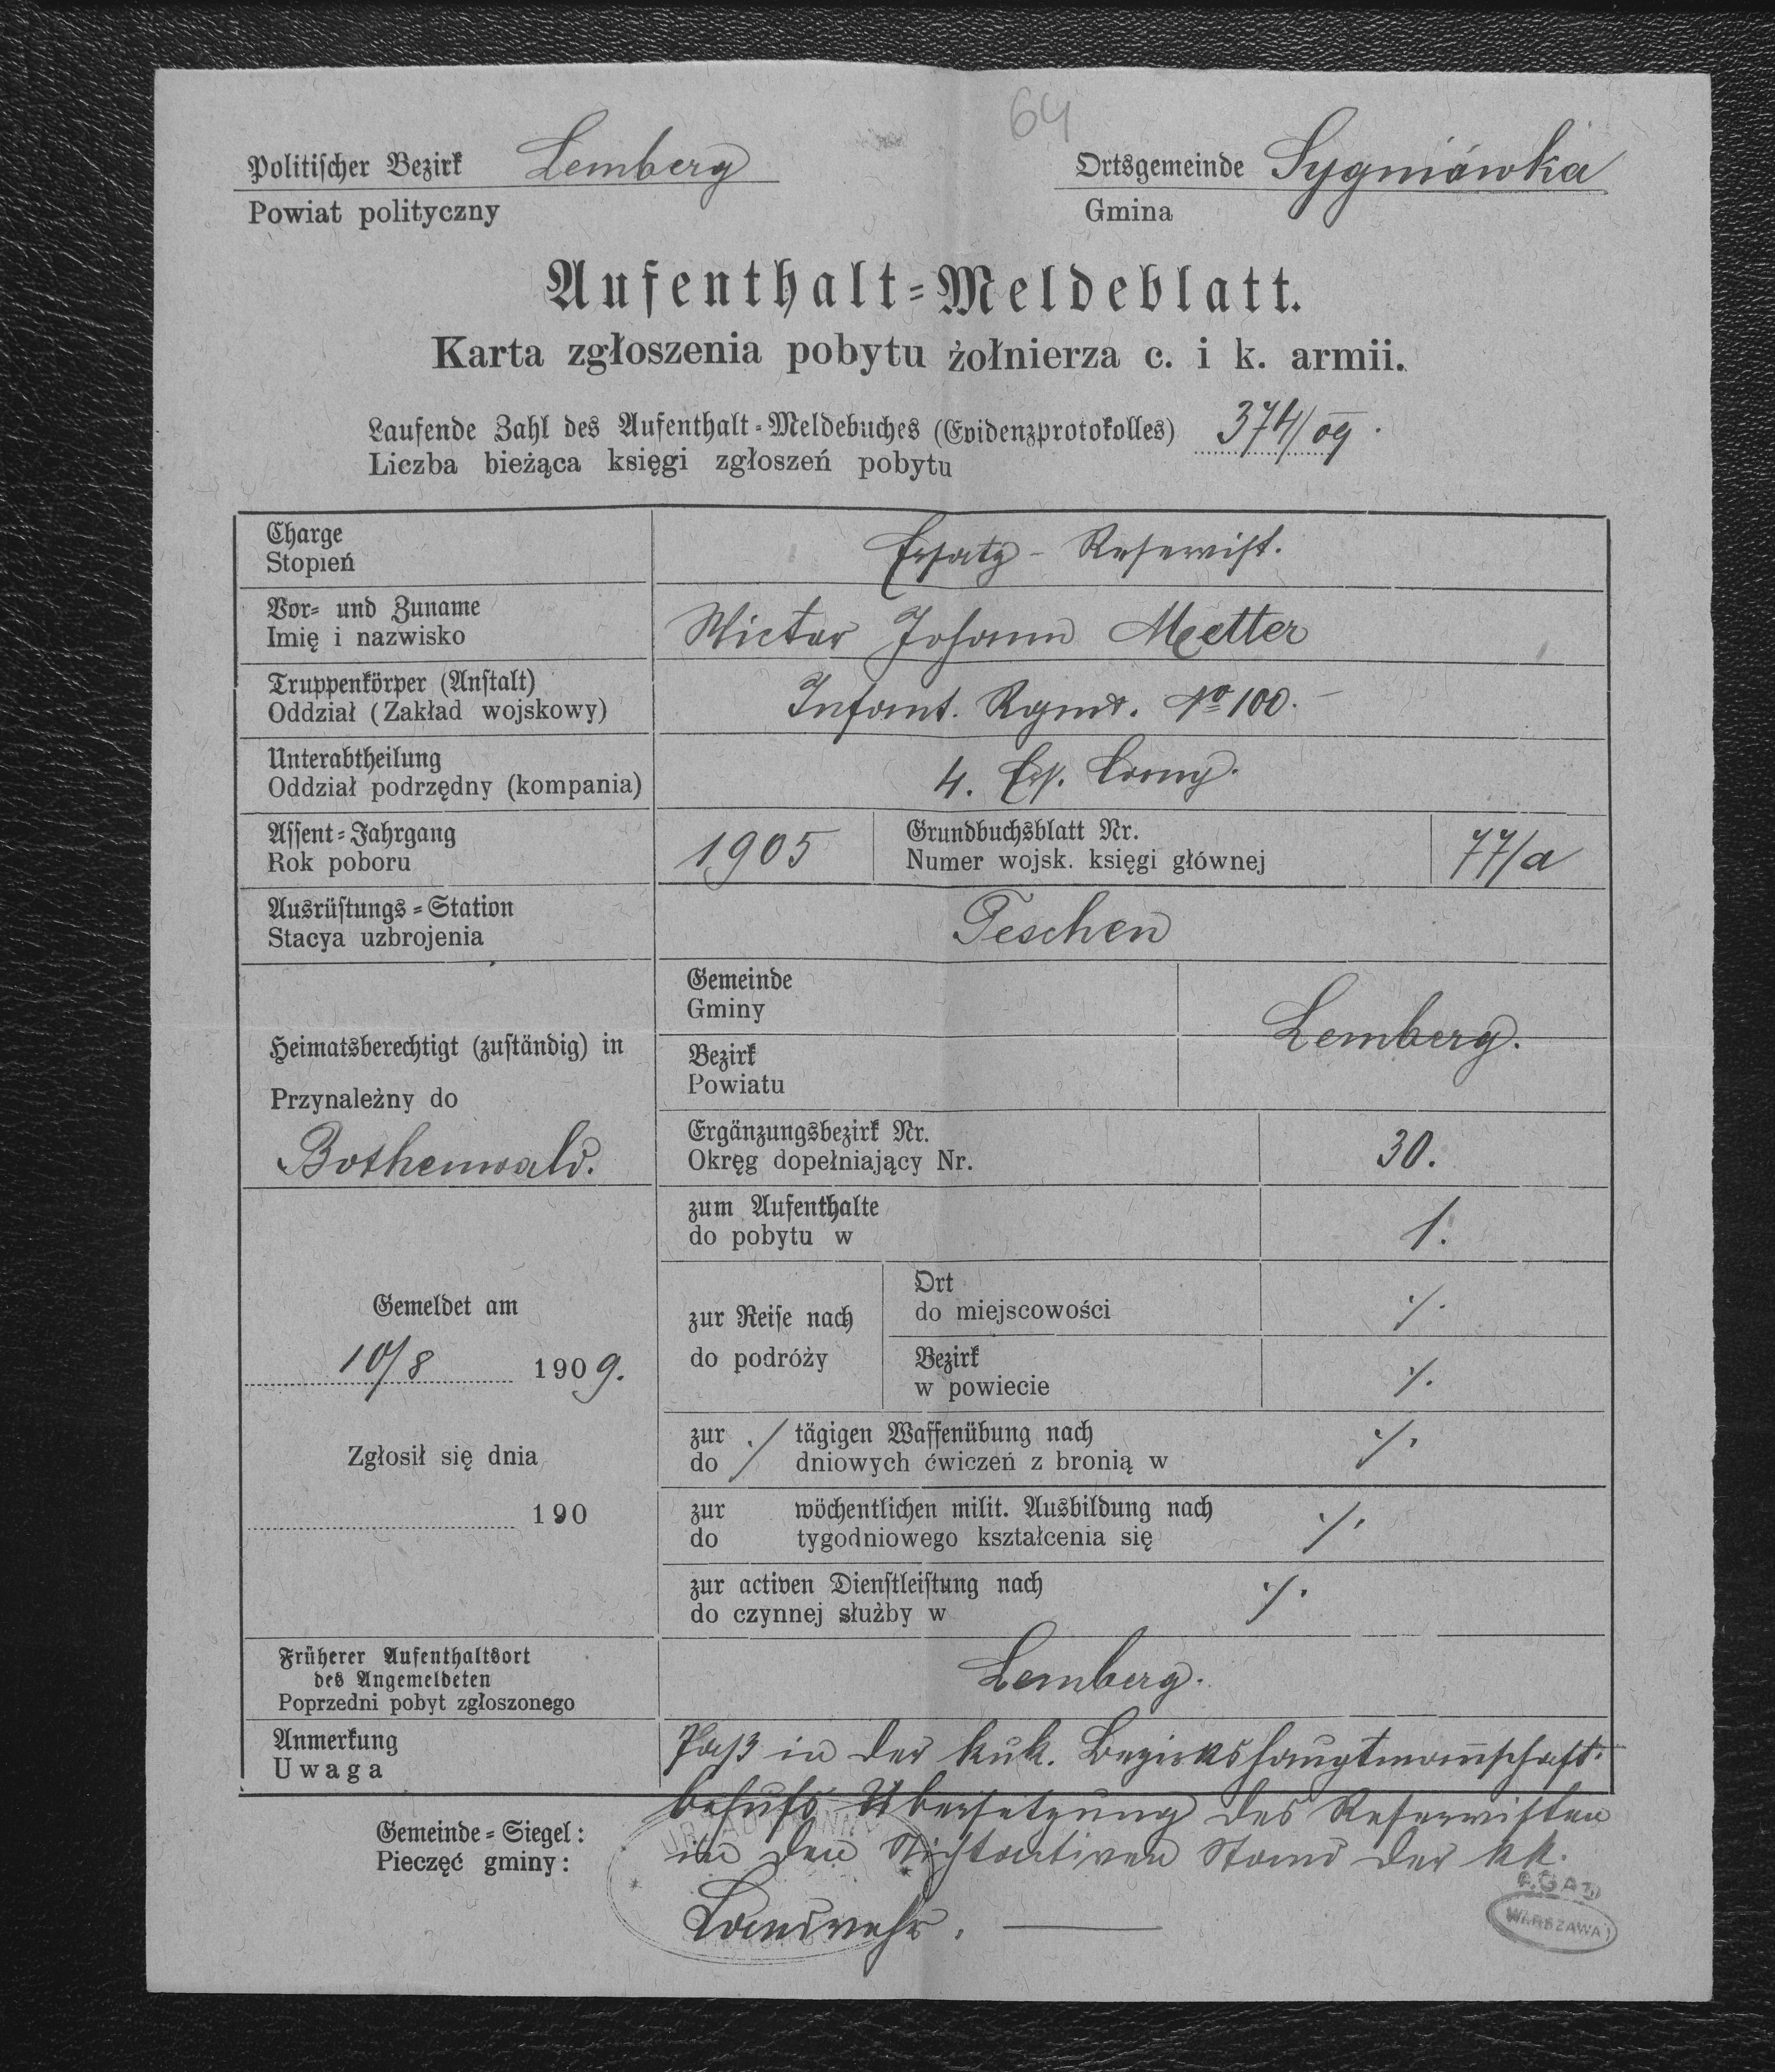 64
Politischer Bezirk Lemberg
Powiat polityczny
Ortsgemeinde Sygniówka
Gmina
Aufenthalt-Meldeblatt.
Karta zgłoszenia pobytu żołnierza c. i k. armii.
Laufende Zahl des Aufenthalt-Meldebuches (Evidenzprotokolles) 374/09.
Liczba bieżąca księgi zgłoszeń pobytu
Charge
Stopień
Ersatz-Reservist.
Vor- und Zuname
Imię i nazwisko
Wictor Johann Metter
Truppenkörper (Anstalt)
Oddział (Zakład wojskowy)
Infant. Rgmt. No 100.
Unterabtheilung
Oddział podrzędny (kompania)
4. Ers. Comp.
Assent-Jahrgang
Rok poboru
1905
Grundbuchsblatt Nr.
Numer wojsk. księgi głównej
77/a
Ausrüstungs-Station
Stacya uzbrojenia
Teschen
Heimatsberechtigt (zuständig) in
Przynależny do
Bothenwald.
Gemeinde
Gminy
Bezirk
Powiatu
Lemberg.
Ergänzungsbezirk Nr.
Okręg dopełniający Nr.
30.
Gemeldet am
10/8 1909.
Zgłosił się dnia
190
zum Aufenthalte
do pobytu w
1.
zur Reise nach
do podróży
Ort
do miejscowości
./.
Bezirk
w powiecie
./.
zur ./ tägigen Waffenübung nach
do dniowych ćwiczeń z bronią w
./.
zur wöchentlichen milit. Ausbildung nach
do tygodniowego kształcenia się
./.
zur activen Dienstleistung nach
do czynnej służby w
./.
Früherer Aufenthaltsort
des Angemeldeten
Poprzedni pobyt zgłoszonego
Lemberg.
Anmerkung
Uwaga
Paß in der kuk. Bezirkshauptmannschaft
behufs Übersetzung des Reservisten
in den Nichtactiven Stand der kk.
Landwehr.
Gemeinde-Siegel:
Pieczęć gminy:
AGAD
WARSZAWA